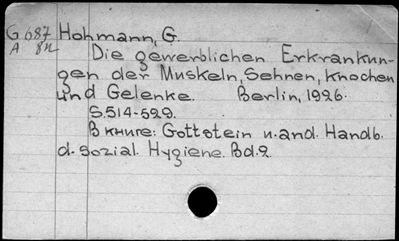 G 687 Hohmann, G.
A 82
Die gewerblichen Erkrankun-
gen der Muskeln, Sehnen, Knochen
und Gelenke. Berlin, 1926.
S. 514-529.
В книге: Gottstein u. and. Handb.
d. sozial. Hygiene. Bd. 2.